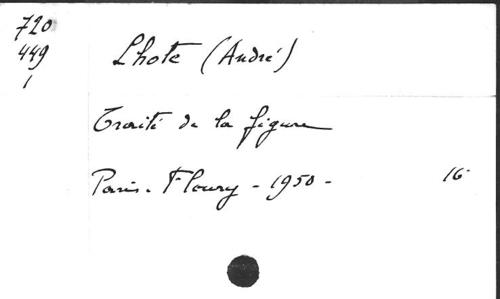 720
449
1
Lhote (André)
Traité de la figure
Paris - Floury - 1950 - 16